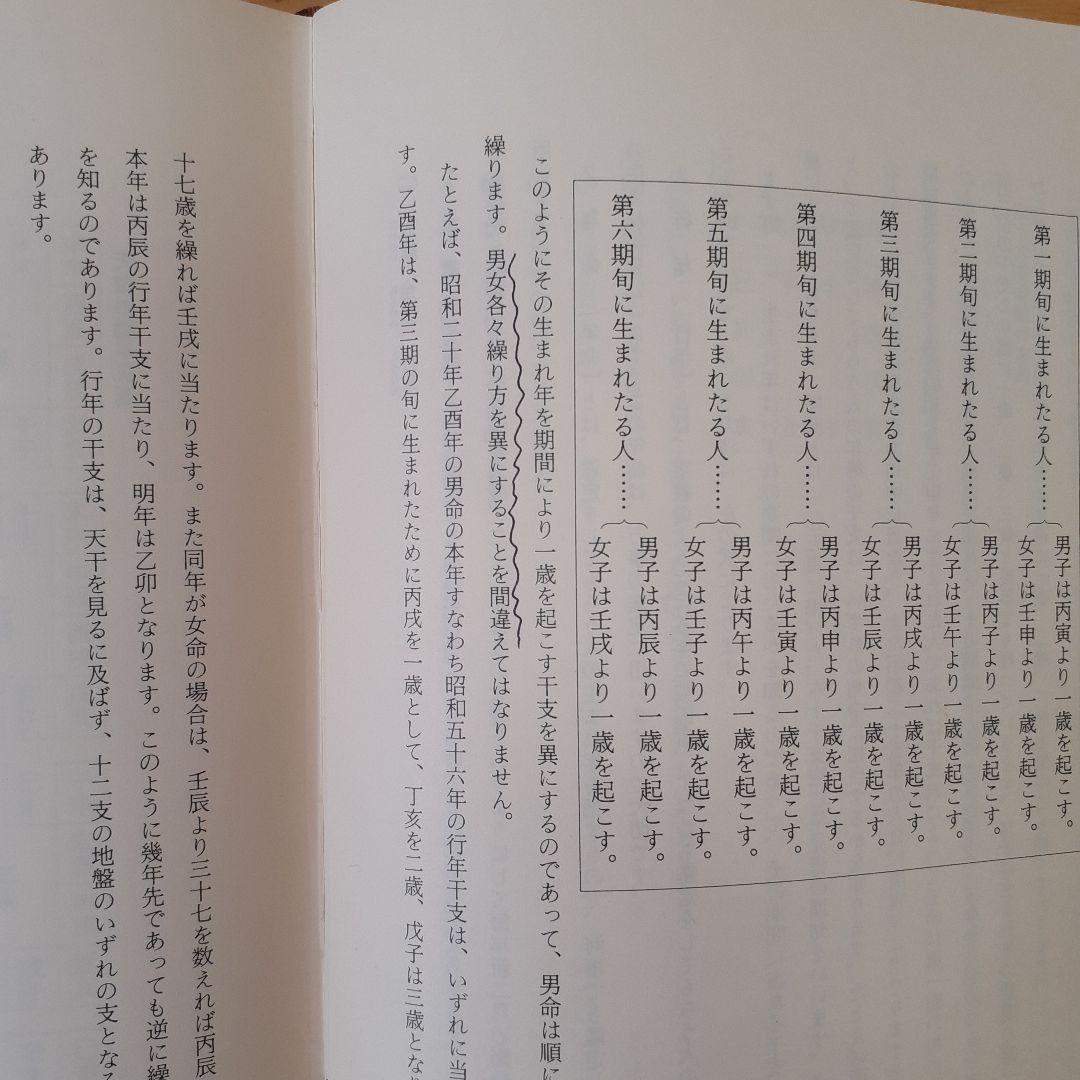 第一期旬に生まれたる人……
男子は丙寅より一歳を起こす。
女子は壬申より一歳を起こす。
第二期旬に生まれたる人……
男子は丙子より一歳を起こす。
女子は壬午より一歳を起こす。
第三期旬に生まれたる人……
男子は丙戌より一歳を起こす。
女子は壬辰より一歳を起こす。
第四期旬に生まれたる人……
男子は丙申より一歳を起こす。
女子は壬寅より一歳を起こす。
第五期旬に生まれたる人……
男子は丙午より一歳を起こす。
女子は壬子より一歳を起こす。
第六期旬に生まれたる人……
男子は丙辰より一歳を起こす。
女子は壬戌より一歳を起こす。
このようにその生まれ年を期間により一歳を起こす干支を異にするのであって、男命は順に
繰ります。男女各々繰り方を異にすることを間違えてはなりません。
たとえば、昭和二十年乙酉年の男命の本年すなわち昭和五十六年の行年干支は、いずれに当
す。乙酉年は、第三期の旬に生まれたために丙戌を一歳として、丁亥を二歳、戊子は三歳とな
十七歳を繰れば壬戌に当たります。また同年が女命の場合は、壬辰より三十七を数えれば丙辰
本年は丙辰の行年干支に当たり、明年は乙卯となります。このように幾年先であっても逆に繰
を知るのであります。行年の干支は、天干を見るに及ばず、十二支の地盤のいずれの支とな
あります。